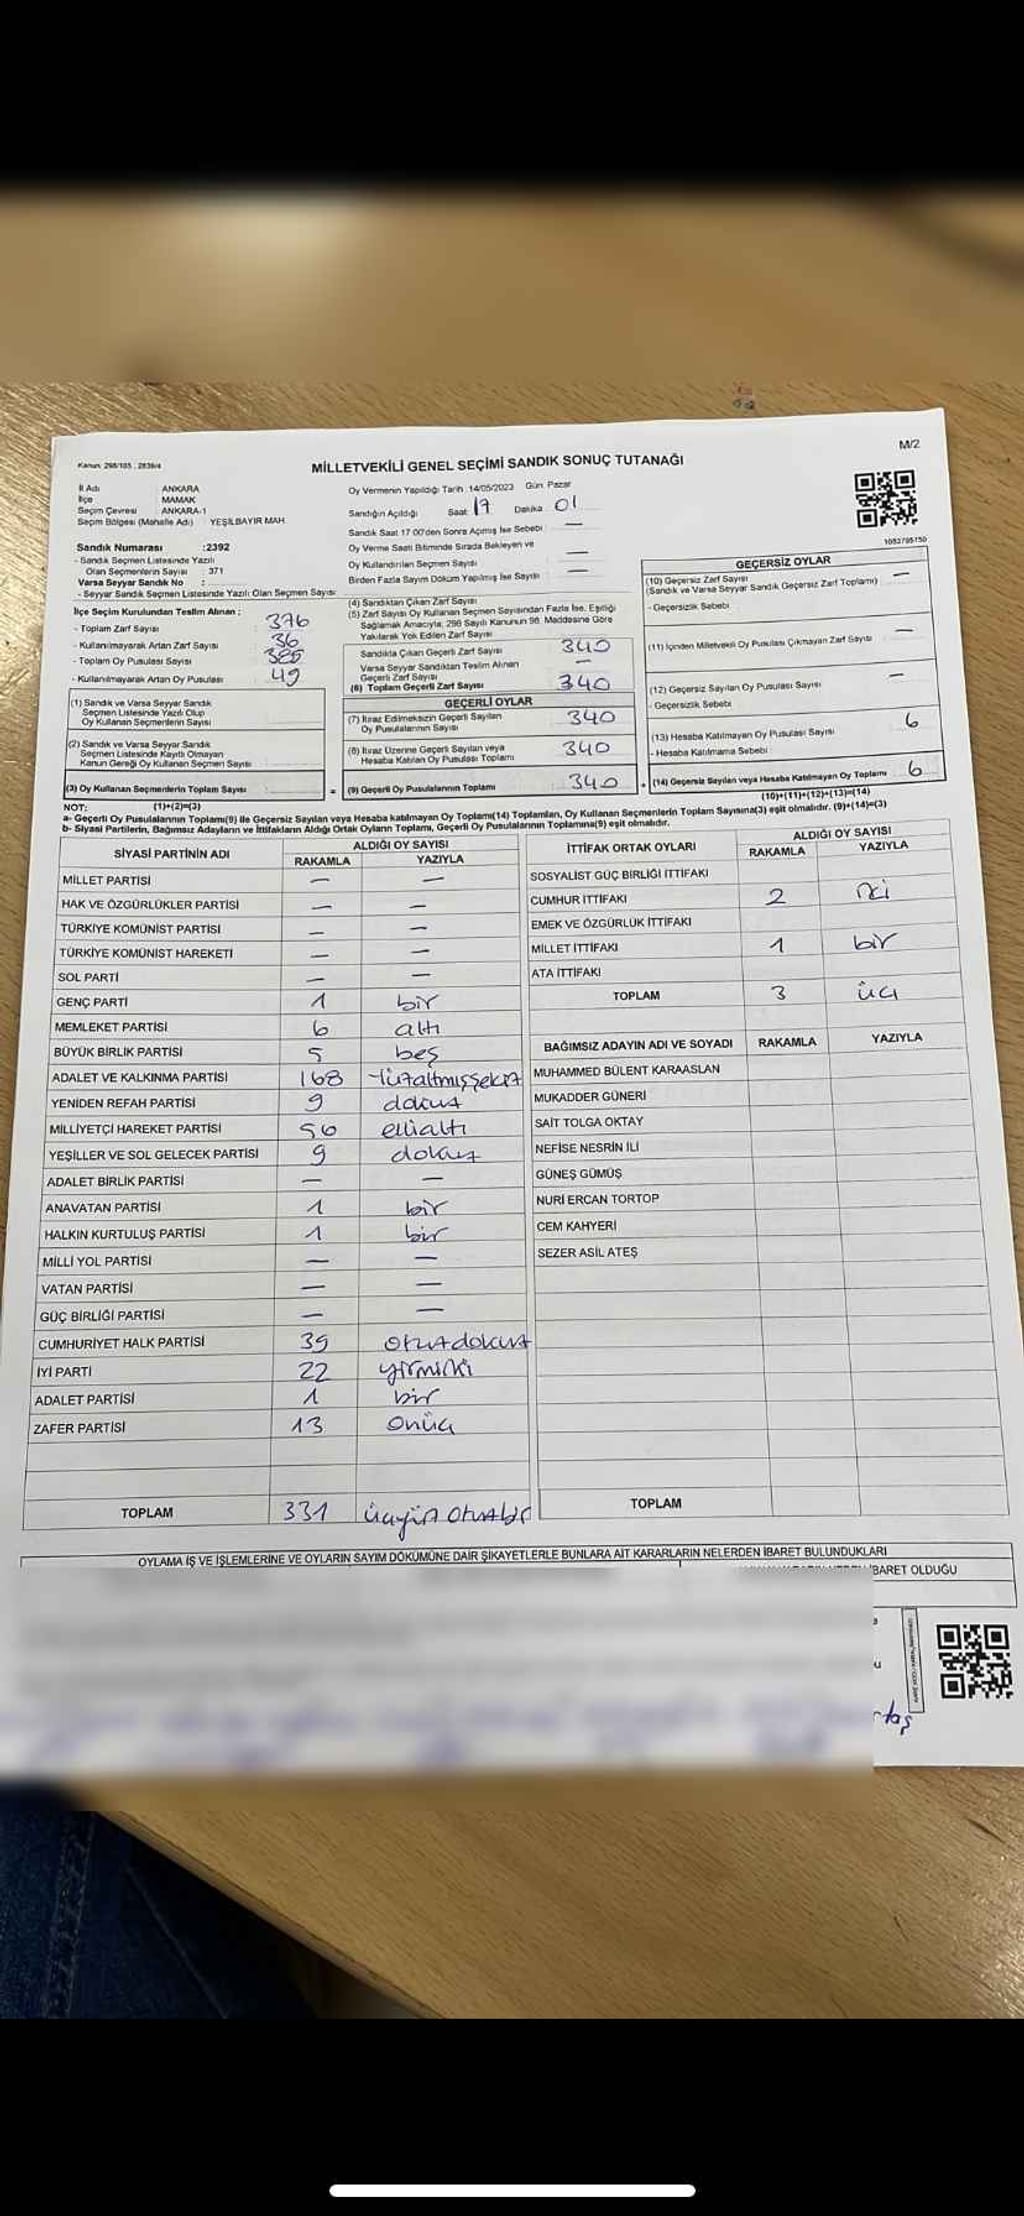 M/2
Kanun: 298/105 , 2839/4
MİLLETVEKİLİ GENEL SEÇİMİ SANDIK SONUÇ TUTANAĞI
İl Adı ANKARA
İlçe MAMAK
Seçim Çevresi ANKARA-1
Seçim Bölgesi (Mahalle Adı) YEŞİLBAYIR MAH.
Sandık Numarası :2392
- Sandık Seçmen Listesinde Yazılı
Olan Seçmenlerin Sayısı : 371
Varsa Seyyar Sandık No :
- Seyyar Sandık Seçmen Listesinde Yazılı Olan Seçmen Sayısı
İlçe Seçim Kurulundan Teslim Alınan :
- Toplam Zarf Sayısı 376
- Kullanılmayarak Artan Zarf Sayısı 36
- Toplam Oy Pusulası Sayısı
- Kullanılmayarak Artan Oy Pusulası 49
(1) Sandık ve Varsa Seyyar Sandık
Seçmen Listesinde Yazılı Olup
Oy Kullanan Seçmenlerin Sayısı
(2) Sandık ve Varsa Seyyar Sandık
Seçmen Listesinde Kayıtlı Olmayan
Kanun Gereği Oy Kullanan Seçmen Sayısı
(3) Oy Kullanan Seçmenlerin Toplam Sayısı
(1)+(2)=(3)
Oy Vermenin Yapıldığı Tarih :14/05/2023 Gün: Pazar
Sandığın Açıldığı Saat 17 Dakika 01
Sandık Saat 17 00'den Sonra Açılmış İse Sebebi : —
Oy Verme Saati Bitiminde Sırada Bekleyen ve
Oy Kullandırılan Seçmen Sayısı —
Birden Fazla Sayım Döküm Yapılmış İse Sayısı —
(4) Sandıktan Çıkan Zarf Sayısı
(5) Zarf Sayısı Oy Kullanan Seçmen Sayısından Fazla İse, Eşitliği
Sağlamak Amacıyla, 298 Sayılı Kanunun 98. Maddesine Göre
Yakılarak Yok Edilen Zarf Sayısı
Sandıkta Çıkan Geçerli Zarf Sayısı 340
Varsa Seyyar Sandıktan Teslim Alınan
Geçerli Zarf Sayısı —
(6) Toplam Geçerli Zarf Sayısı 340
GEÇERLİ OYLAR
(7) İtiraz Edilmeksizin Geçerli Sayılan
Oy Pusulalarının Sayısı 340
(8) İtiraz Üzerine Geçerli Sayılan veya
Hesaba Katılan Oy Pusulası Toplamı 340
= (9) Geçerli Oy Pusulalarının Toplamı 340
1052795150
GEÇERSİZ OYLAR
(10) Geçersiz Zarf Sayısı —
(Sandık ve Varsa Seyyar Sandık Geçersiz Zarf Toplamı)
- Geçersizlik Sebebi
(11) İçinden Milletvekili Oy Pusulası Çıkmayan Zarf Sayısı —
(12) Geçersiz Sayılan Oy Pusulası Sayısı —
- Geçersizlik Sebebi
(13) Hesaba Katılmayan Oy Pusulası Sayısı 6
- Hesaba Katılmama Sebebi :
+ (14) Geçersiz Sayılan veya Hesaba Katılmayan Oy Toplamı 6
(10)+(11)+(12)+(13)=(14)
NOT:
a- Geçerli Oy Pusulalarının Toplamı(9) ile Geçersiz Sayılan veya Hesaba katılmayan Oy Toplamı(14) Toplamları, Oy Kullanan Seçmenlerin Toplam Sayısına(3) eşit olmalıdır. (9)+(14)=(3)
b- Siyasi Partilerin, Bağımsız Adayların ve İttifakların Aldığı Ortak Oyların Toplamı, Geçerli Oy Pusulalarının Toplamına(9) eşit olmalıdır.
SİYASİ PARTİNİN ADI ALDIĞI OY SAYISI
RAKAMLA YAZIYLA
MİLLET PARTİSİ — —
HAK VE ÖZGÜRLÜKLER PARTİSİ — —
TÜRKİYE KOMÜNİST PARTİSİ — —
TÜRKİYE KOMÜNİST HAREKETİ — —
SOL PARTİ — —
GENÇ PARTİ 1 bir
MEMLEKET PARTİSİ 6 altı
BÜYÜK BİRLİK PARTİSİ 5 beş
ADALET VE KALKINMA PARTİSİ 168 Yüzaltmışsekiz
YENİDEN REFAH PARTİSİ 9 dokuz
MİLLİYETÇİ HAREKET PARTİSİ 56 ellialtı
YEŞİLLER VE SOL GELECEK PARTİSİ 9 dokuz
ADALET BİRLİK PARTİSİ — —
ANAVATAN PARTİSİ 1 bir
HALKIN KURTULUŞ PARTİSİ 1 bir
MİLLİ YOL PARTİSİ — —
VATAN PARTİSİ — —
GÜÇ BİRLİĞİ PARTİSİ — —
CUMHURİYET HALK PARTİSİ 39 otuzdokuz
İYİ PARTİ 22 yirmiiki
ADALET PARTİSİ 1 bir
ZAFER PARTİSİ 13 onüç
TOPLAM 331 üçyüz otuzbir
İTTİFAK ORTAK OYLARI ALDIĞI OY SAYISI
RAKAMLA YAZIYLA
SOSYALİST GÜÇ BİRLİĞİ İTTİFAKI
CUMHUR İTTİFAKI 2 iki
EMEK VE ÖZGÜRLÜK İTTİFAKI
MİLLET İTTİFAKI 1 bir
ATA İTTİFAKI
TOPLAM 3 üç
BAĞIMSIZ ADAYIN ADI VE SOYADI RAKAMLA YAZIYLA
MUHAMMED BÜLENT KARAASLAN
MUKADDER GÜNERİ
SAİT TOLGA OKTAY
NEFİSE NESRİN İLİ
GÜNEŞ GÜMÜŞ
NURİ ERCAN TORTOP
CEM KAHYERİ
SEZER ASİL ATEŞ
TOPLAM
OYLAMA İŞ VE İŞLEMLERİNE VE OYLARIN SAYIM DÖKÜMÜNE DAİR ŞİKAYETLERLE BUNLARA AİT KARARLARIN NELERDEN İBARET BULUNDUKLARI
İBARET OLDUĞU